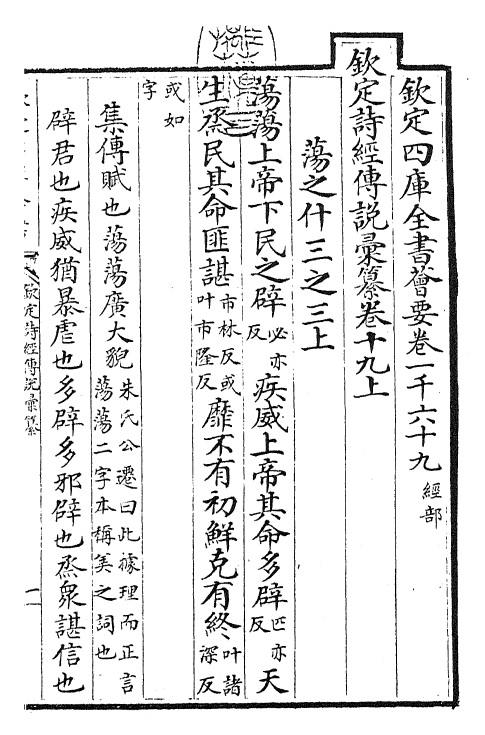 欽定四庫全書薈要卷一千六十九 經部
欽定詩經傳說彙纂卷十九上
蕩之什三之三上
蕩蕩上帝下民之辟必亦反疾威上帝其命多辟匹亦反天
生烝民其命匪諶市林反或叶市隆反靡不有初鮮克有終叶諸深反
或如字
集傳賦也蕩蕩廣大貌朱氏公遷曰此據理而正言蕩蕩二字本稱美之詞也
辟君也疾威猶暴虐也多辟多邪辟也烝衆諶信也
欽定詩經傳說彙纂
一